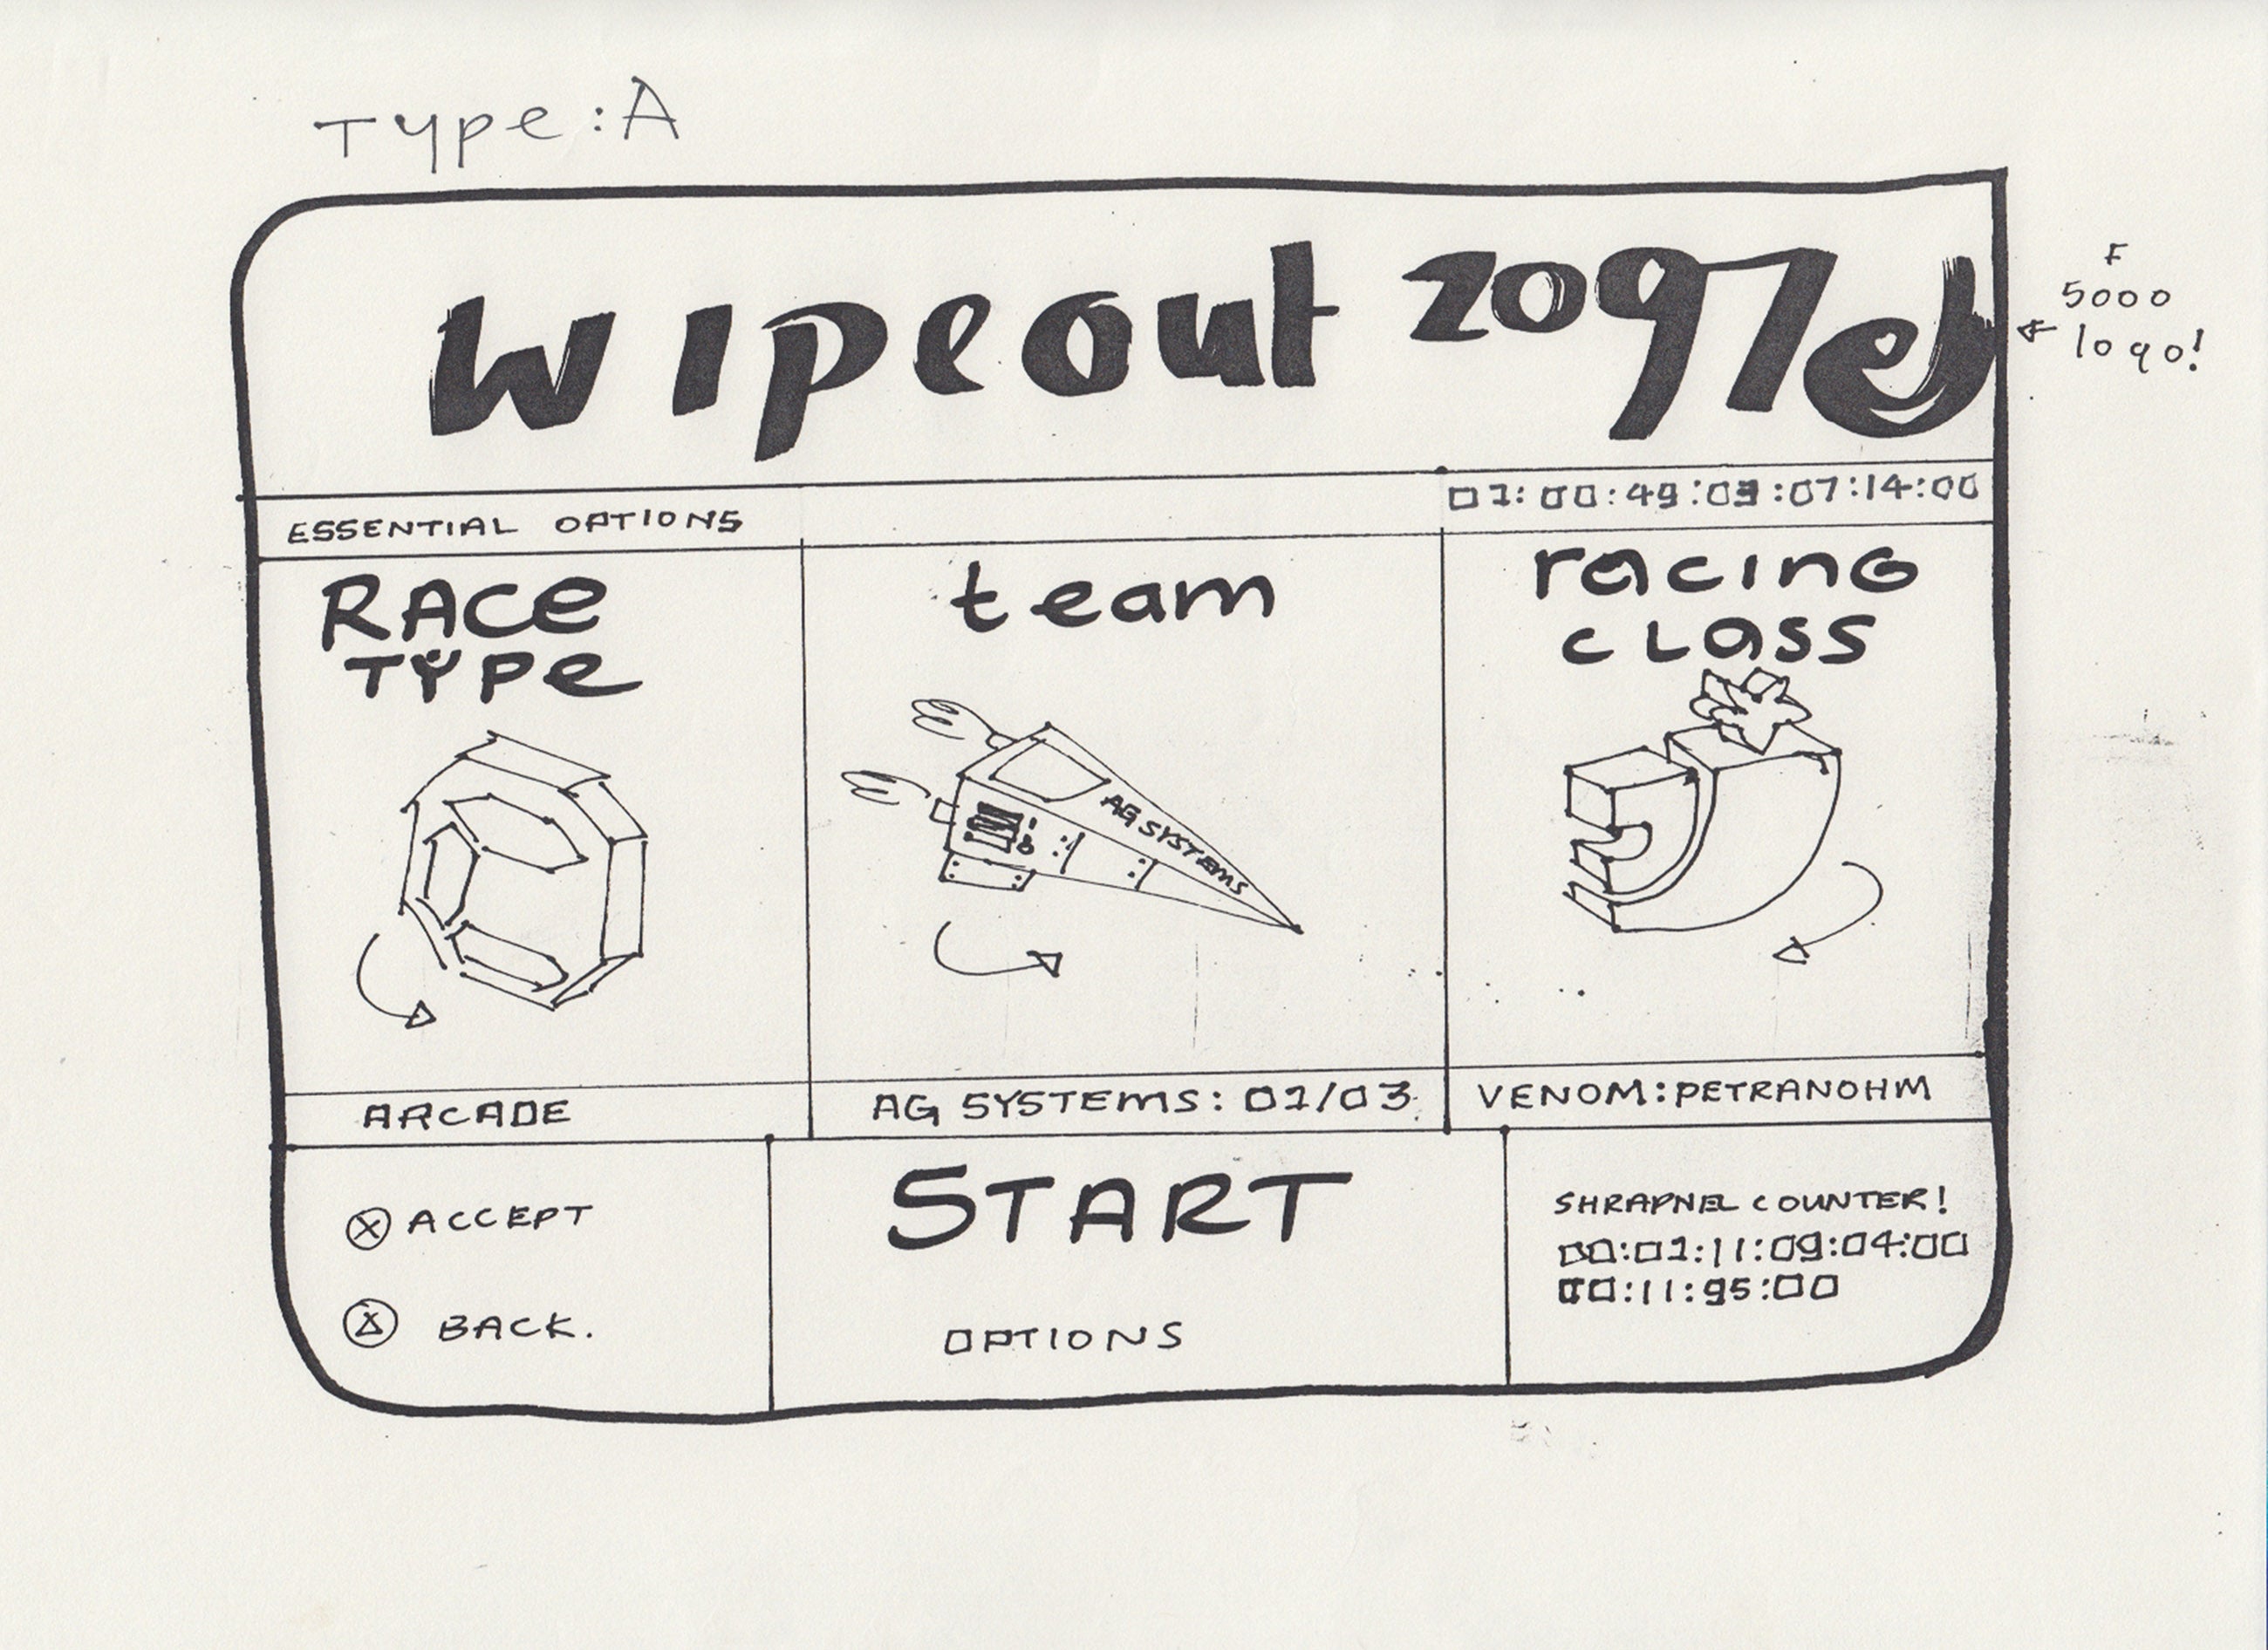 Type:A
wipeout 2097
F
5000
logo!
ESSENTIAL OPTIONS
01:00:49:03:07:14:00
RACE
TYPE
team
racing
class
AG SYSTEMS
ARCADE
AG SYSTEMS: 01/03
VENOM:PETRANOHM
ACCEPT
BACK.
START
OPTIONS
SHRAPNEL COUNTER!
00:01:11:09:04:00
00:11:95:00